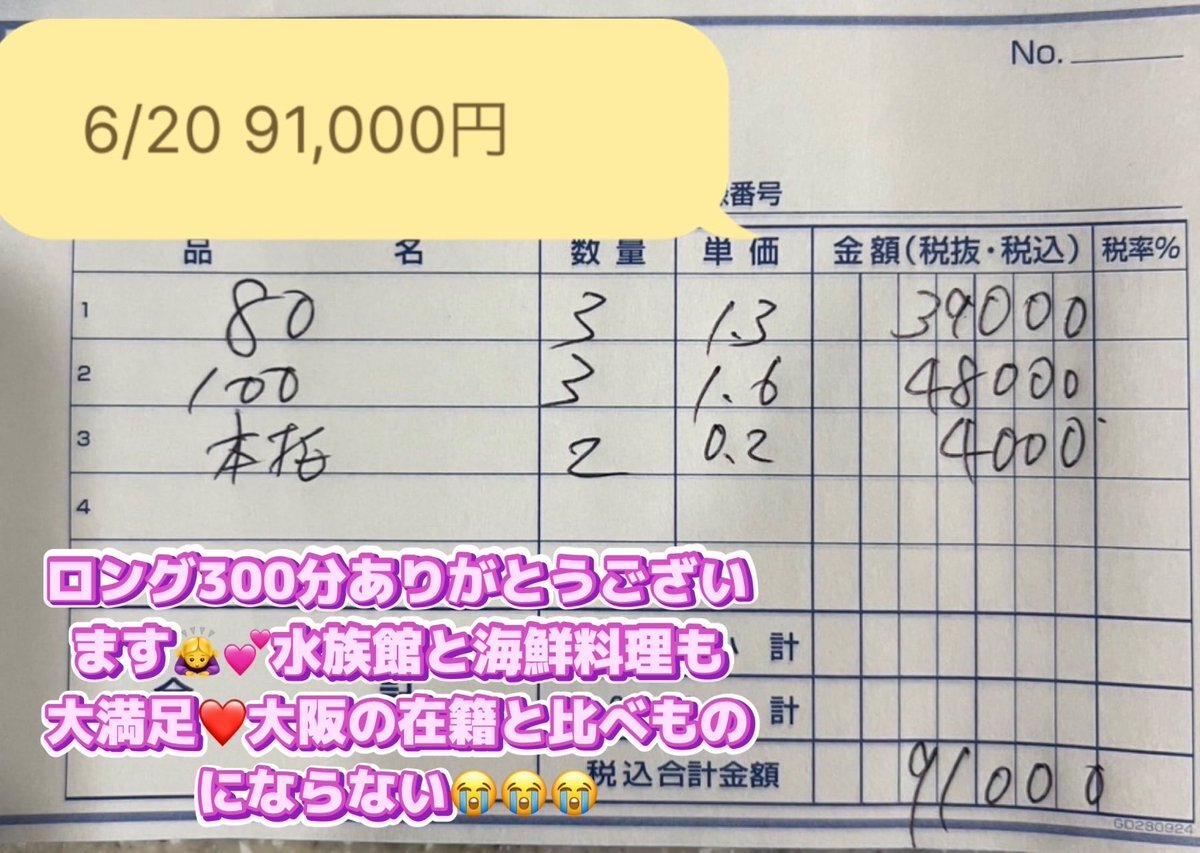 No.
6/20 91,000円
番号
品 名 数量 単価 金額(税抜・税込) 税率%
1 80 3 1.3 39000
2 100 3 1.6 48000
3 本指 2 0.2 4000
4
ロング300分ありがとうござい
ます🙇‍♀️💕水族館と海鮮料理も
計
大満足❤️大阪の在籍と比べもの
計
にならない😭😭😭
税込合計金額 91000
GD280924